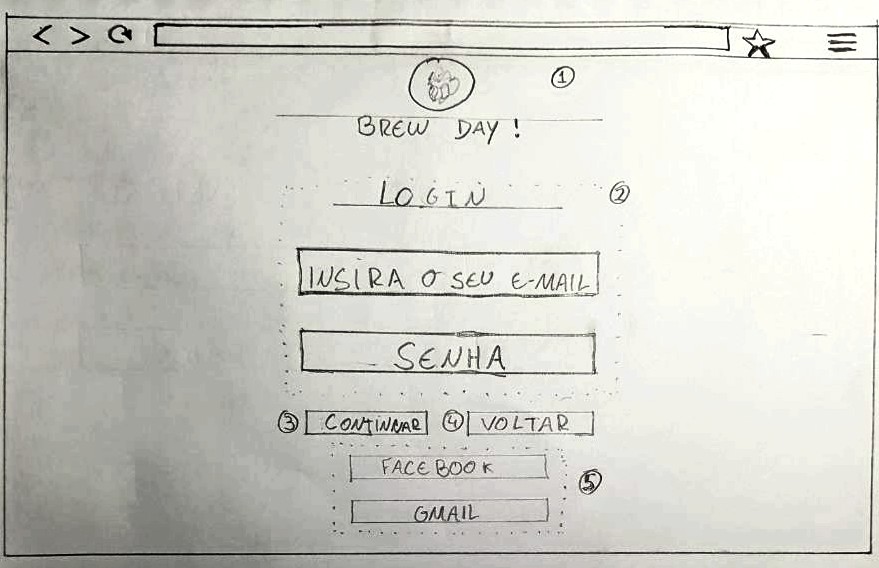 1
BREW DAY!
LOGIN 2
INSIRA O SEU E-MAIL
SENHA
3 CONTINUAR 4 VOLTAR
FACEBOOK
5
GMAIL